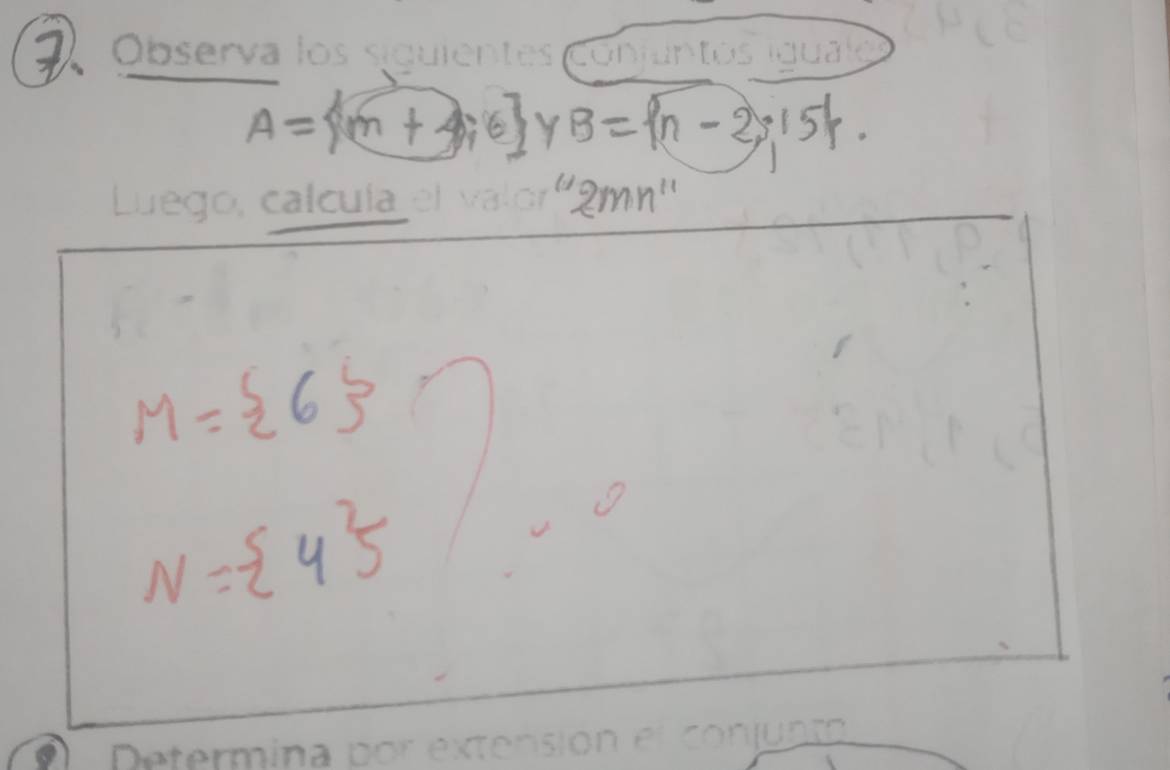 7. Observa los siguientes conjuntos iguales
A = {m + 4; 6} y B = {n - 2; 15}.
Luego, calcula el valor "2mn"
M = {6}
N = {4}
Determina por extensión el conjunto